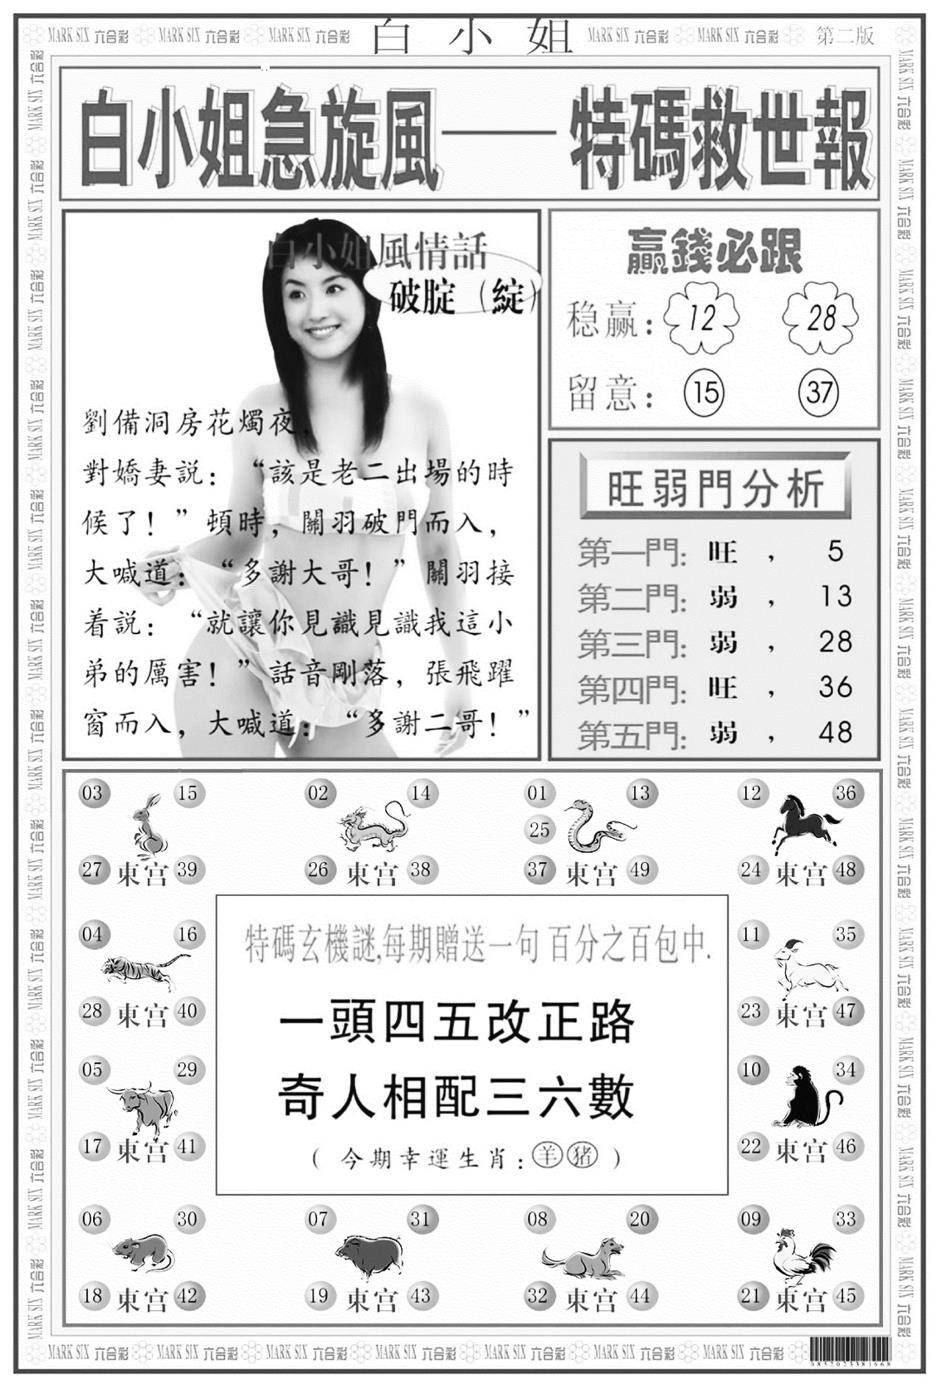 MARK SIX 六合彩 MARK SIX 六合彩 MARK SIX 六合彩 白小姐 MARK SIX 六合彩 MARK SIX 六合彩 第二版
白小姐急旋風——特碼救世報
白小姐風情話
破腚（綻）
劉備洞房花燭夜，
對嬌妻説：“該是老二出場的時
候了！”頓時，關羽破門而入，
大喊道：“多謝大哥！”關羽接
着説：“就讓你見識見識我這小
弟的厲害！”話音剛落，張飛躍
窗而入，大喊道：“多謝二哥！”
贏錢必跟
稳赢： 12 28
留意： 15 37
旺弱門分析
第一門: 旺 ， 5
第二門: 弱 ， 13
第三門: 弱 ， 28
第四門: 旺 ， 36
第五門: 弱 ， 48
03 15
27 東宫 39
02 14
26 東宫 38
01 13
25
37 東宫 49
12 36
24 東宫 48
04 16
28 東宫 40
11 35
23 東宫 47
05 29
17 東宫 41
10 34
22 東宫 46
特碼玄機謎,每期贈送一句 百分之百包中.
一頭四五改正路
奇人相配三六數
（今期幸運生肖：羊 猪）
06 30
18 東宫 42
07 31
19 東宫 43
08 20
32 東宫 44
09 33
21 東宫 45
MARK SIX 六合彩 MARK SIX 六合彩 MARK SIX 六合彩 MARK SIX 六合彩 MARK SIX 六合彩 MARK SIX 六合彩 MARK SIX 六合彩